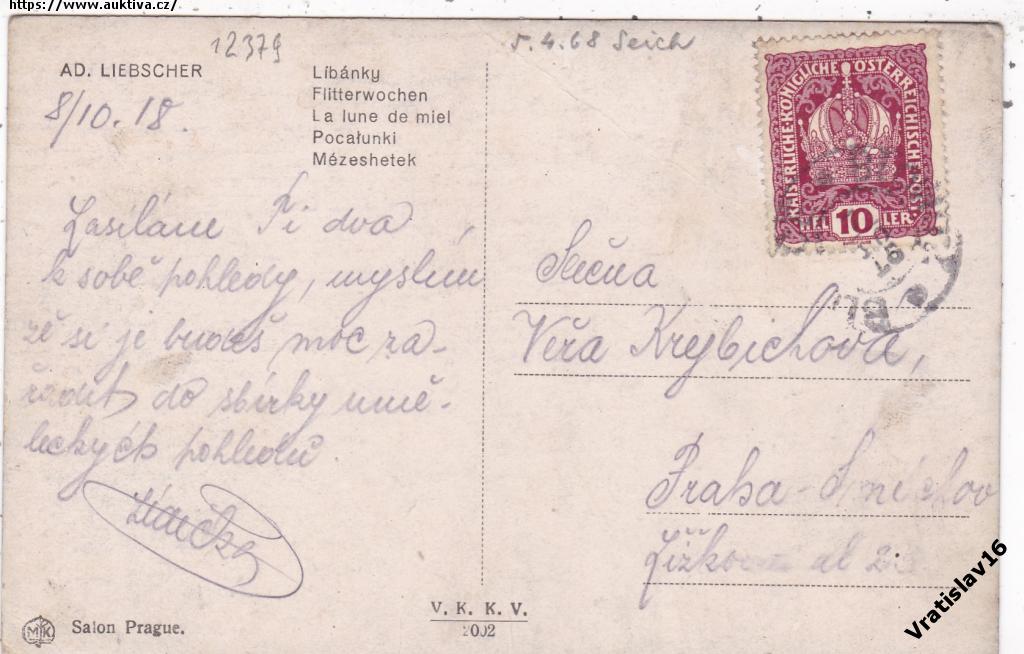 https://www.auktiva.cz/
12379
5.4.68 Seich
AD. LIEBSCHER
8/10. 18.
Líbánky
Flitterwochen
La lune de miel
Pocałunki
Mézeshetek
KAISERLICHE KÖNIGLICHE ÖSTERREICHISCHE POST
10 HELLER
Zasíláme Ti dva
k sobě pohledy, myslím
že si je budeš moc za-
řadit do sbírky umě-
leckých pohledů
Slečna
Věra Krybichova,
Praha-Smíchov
V. K. K. V.
2002
MK
Salon Prague.
Vratislav16